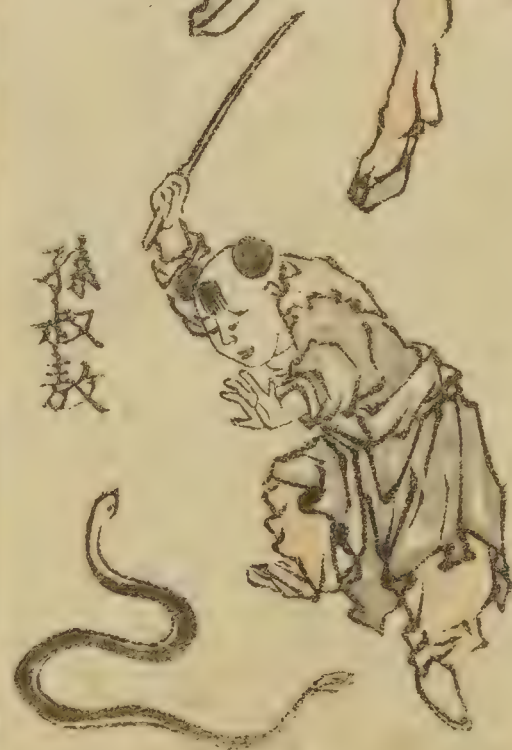 孫叔敖